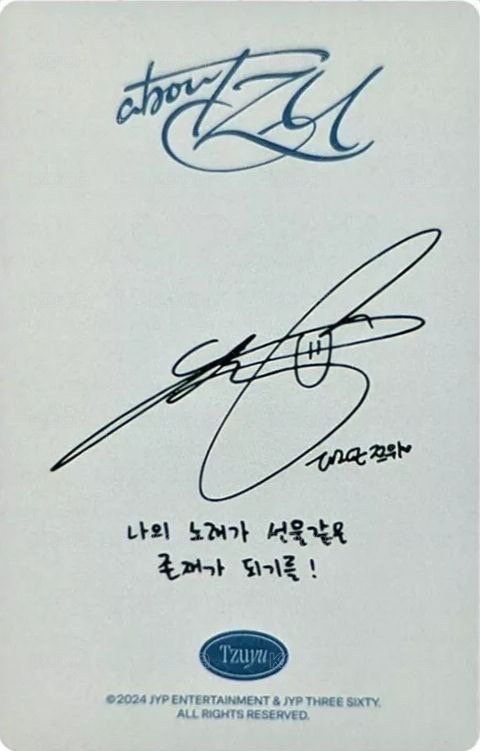 about TZU
쯔위♥
나의 노래가 선물같은
존재가 되기를!
Tzuyu
©2024 JYP ENTERTAINMENT & JYP THREE SIXTY.
ALL RIGHTS RESERVED.